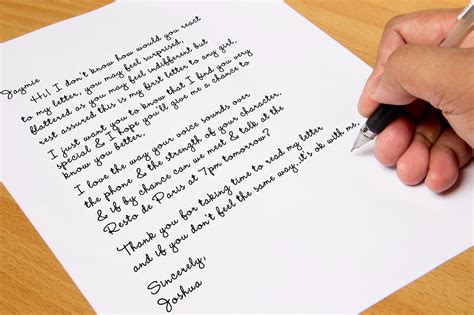 Jaymie
Hi! I don't know how would you react
to my letter, you may feel surprised,
flattered as you may feel indifferent but
rest assured this is my first letter to any girl.
I just want you to know that I find you very
special & I hope you'll give me a chance to
know you better.
I love the way your voice sounds over
the phone & the strength of your character.
& if by chance can we meet & talk at the
Resto de Paris at 7pm tomorrow?
Thank you for taking time to read my letter
and if you don't feel the same way it's ok with me.
Sincerely,
Joshua